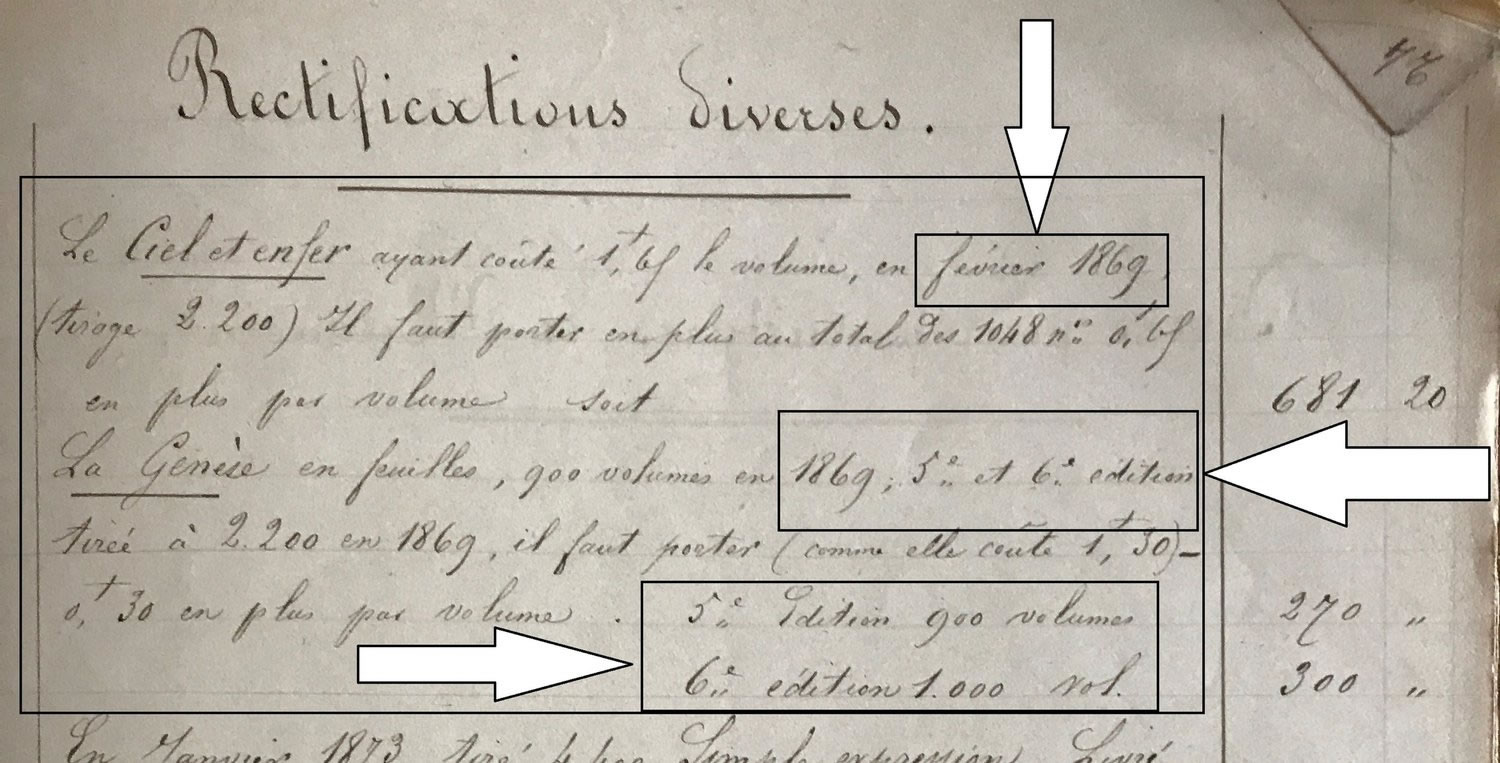 Rectifications diverses.
Le Ciel et enfer ayant coûté 1,f65 le volume, en février 1869,
(tirage 2.200) Il faut porter en plus au total des 1048 nos 0,f65
en plus par volume soit 681 20
La Genèse en feuilles, 900 volumes en 1869, 5e et 6e édition
tirée à 2.200 en 1869, il faut porter (comme elle coûte 1,f30)-
0,f30 en plus par volume. 5e Edition 900 volumes 270 "
6e édition 1.000 vol. 300 "
En Janvier 1873 tiré Simple expression Livré